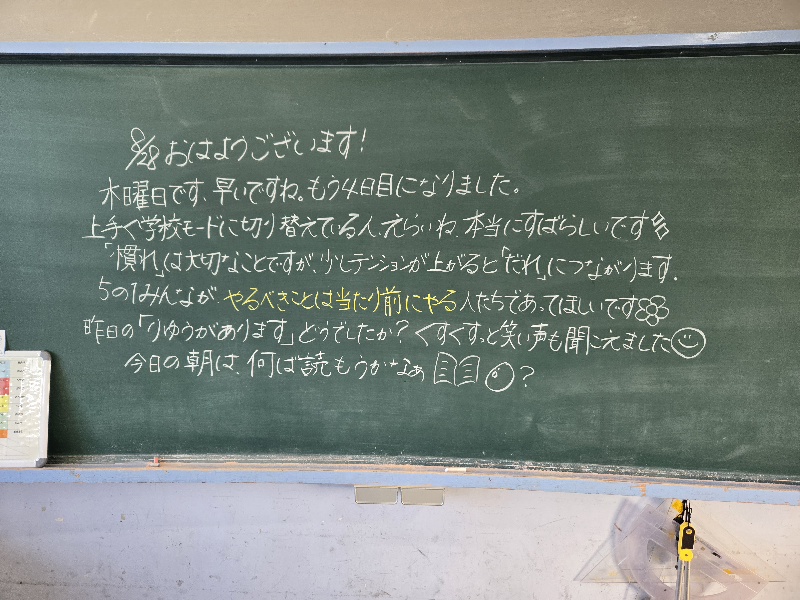 8/28 おはようございます!
木曜日です、早いですね。もう4日目になりました。
上手く学校モードに切り替えている人、えらいね、本当にすばらしいです
「慣れ」は大切なことですが、少しテンションが上がると「だれ」につながります。
5の1みんなが、やるべきことは当たり前にやる人たちであってほしいです
昨日の「りゆうがあります」どうでしたか?くすくすっと笑い声も聞こえました
今日の朝は、何ば読もうかなぁ ?